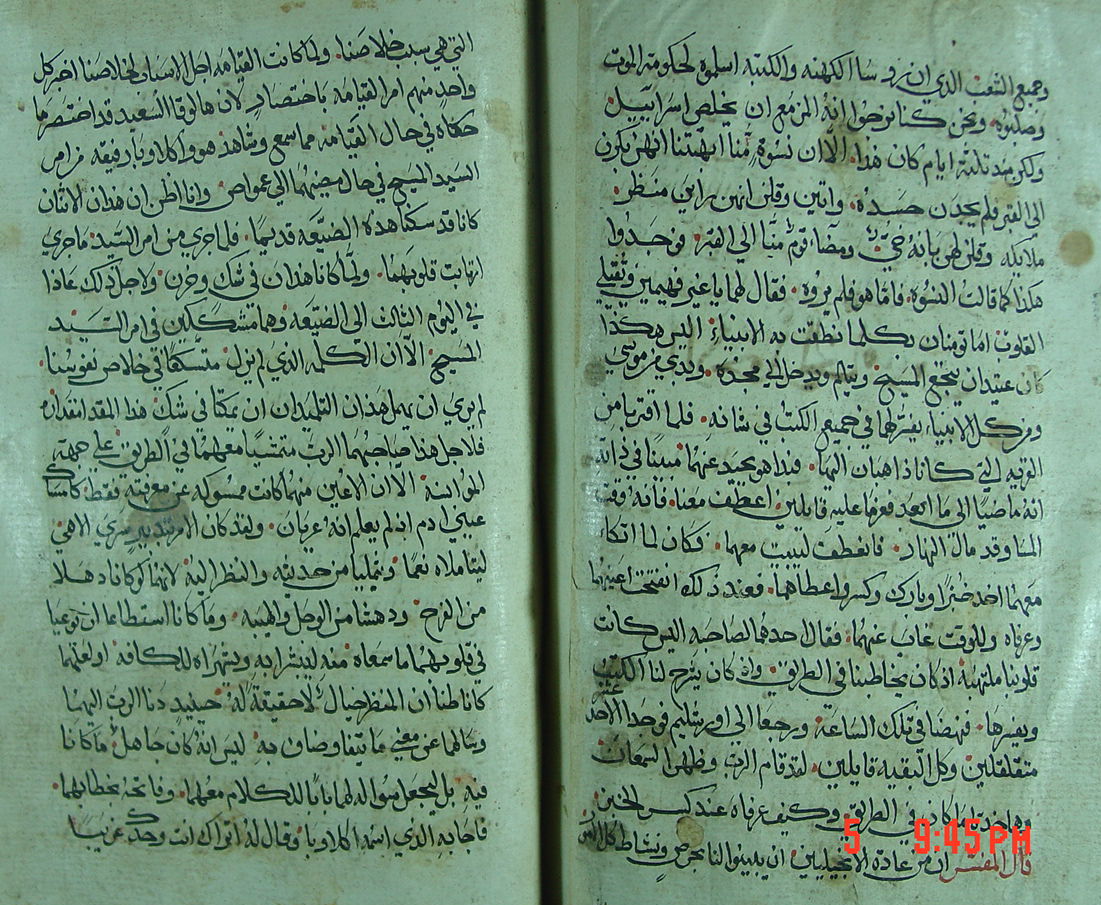 وجميع الشعب الذي ان روسا الكهنه والكتبه اسلموه لحكومة الموت
وصلبوه ونحن كنا نرجوا انه المزمع ان يخلص اسراييل
ولكن منذ تلتة ايام كان هذا الا ان نسوة منا ابهتننا انهن بكرن
الي القبر فلم يجدن جسده واتين وقلن انهن راين منظر
ملايكه وقلن لهن بانه حي ومضا قوم منا الي القبر فوجدوا
هكذا كما قالت النسوه فاما هو فلم يروه فقال لهما يا غير فهيمين وثقيلي
القلوب اما تومنان بكلما نطقت به الانبياء اليس هكذا
كان عتيدان يجع المسيح ويتالم ويدخل الي مجده وبدي من موسي
ومن كل الانبياء يفسر لهما في جميع الكتب في شانه فلما اقتربا من
القريه التي كانا ذاهبان اليها فبدا هو يحيد عنهما مبينا في ذاته
انه ماضيا الي ما ابعد فعزما عليه قايلين اعطف معنا فانه وقت
المسا وقد مال النهار فانعطف ليبيت معهما وكان لما اتكا
معهما اخذ خبزا وبارك وكسر واعطاهما فعند ذلك انفتحت اعينهما
وعرفاه وللوقت غاب عنهما فقال احدهما لصاحبه اليس كانت
قلوبنا ملتهبة اذ كان يخاطبنا في الطريق واذ كان يشرح لنا الكتب
ويفسرها فنهضا في تلك الساعه ورجعا الي اورشليم فوجدا الاحد عشر
متقلقلين وكل البقيه قايلين لقد قام الرب وظهر لسمعان
وهما خبرا بما كان في الطريق وكيف عرفاه عند كسر الخبز
قال المفسر ان من عادة الانجيليين ان يبينوا لنا بحرص ونشاط كل الامور
التي هي سبب خلاصنا ولما كانت القيامه اجل الاسباب لخلاصنا اخبر كل
واحد منهم امر القيامه باختصار لان هالوقا السعيد قد اختصر ما
حكاه في حال القيامه مما سمع وشاهد هو واكلاوبا رفيقه من امر
السيد المسيح في حال مضيهما الي عمواص وانا اظن ان هذان الاتنان
كانا قد سكنا هده الضيعه قديما فلما جري من امر السيد ما جري
ارتابت قلوبهما ولما كانا هذان في شك وحزن ولاجل ذلك عادا
في اليوم الثالث الي الضيعه وهما متشككين في امر السيد
المسيح الا ان الكلمه الذي لم يزل متسكعا في خلاص نفوسنا
لم يري ان يهمل هذان التلميدان ان يمكتا في شك هذا المقدار مقداره
فلاجل هذا صاحبهما الرب متمشيا معهما في الطريق علي جهة
الموانسة الا ان الاعين منهما كانت ممسوكه عن معرفته فقط كامساك
عيني ادم اذ لم يعلم انه عريان ولقد كان الامر بتدبير سري الاهي
ليتاملاه نعما ويتمليا من حديثه والنظر اليه لانهما لو كانا دهلا
من الفرح ودهشا من الوجل والهيبه وما كانا استطاعا ان يوعيا
في قلوبهما ما سمعاه منه ليبشرا به ويشهراه للكافه او لعلهما
كانا ظنا ان المنظر خيال لا حقيقة له حينيد دنا الرب اليهما
وسالهما عن معني ما يتفاوضان به ليس انه كان جاهل ما كانا
فيه بل ليجعل سواله لهما بابا للكلام معهما وفاتحة بخطابهما
فاجابه الذي اسمه اكلاوبا وقال له اتراك انت وحدك غريبا